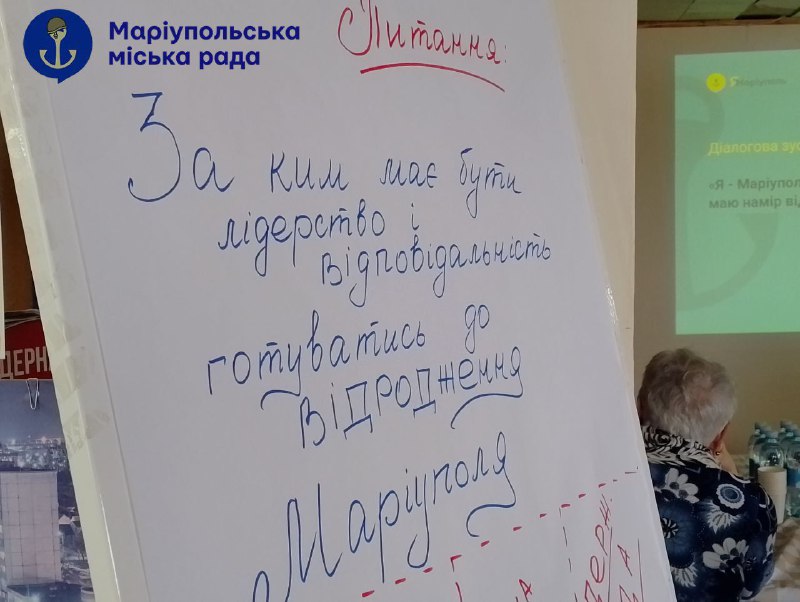 Маріупольська
міська рада
Питання:
За ким має бути
лідерство і
відповідальність
готуватись до
відродження
Маріуполя
ЯМаріуполь
Діалогова
«Я -
маю намір